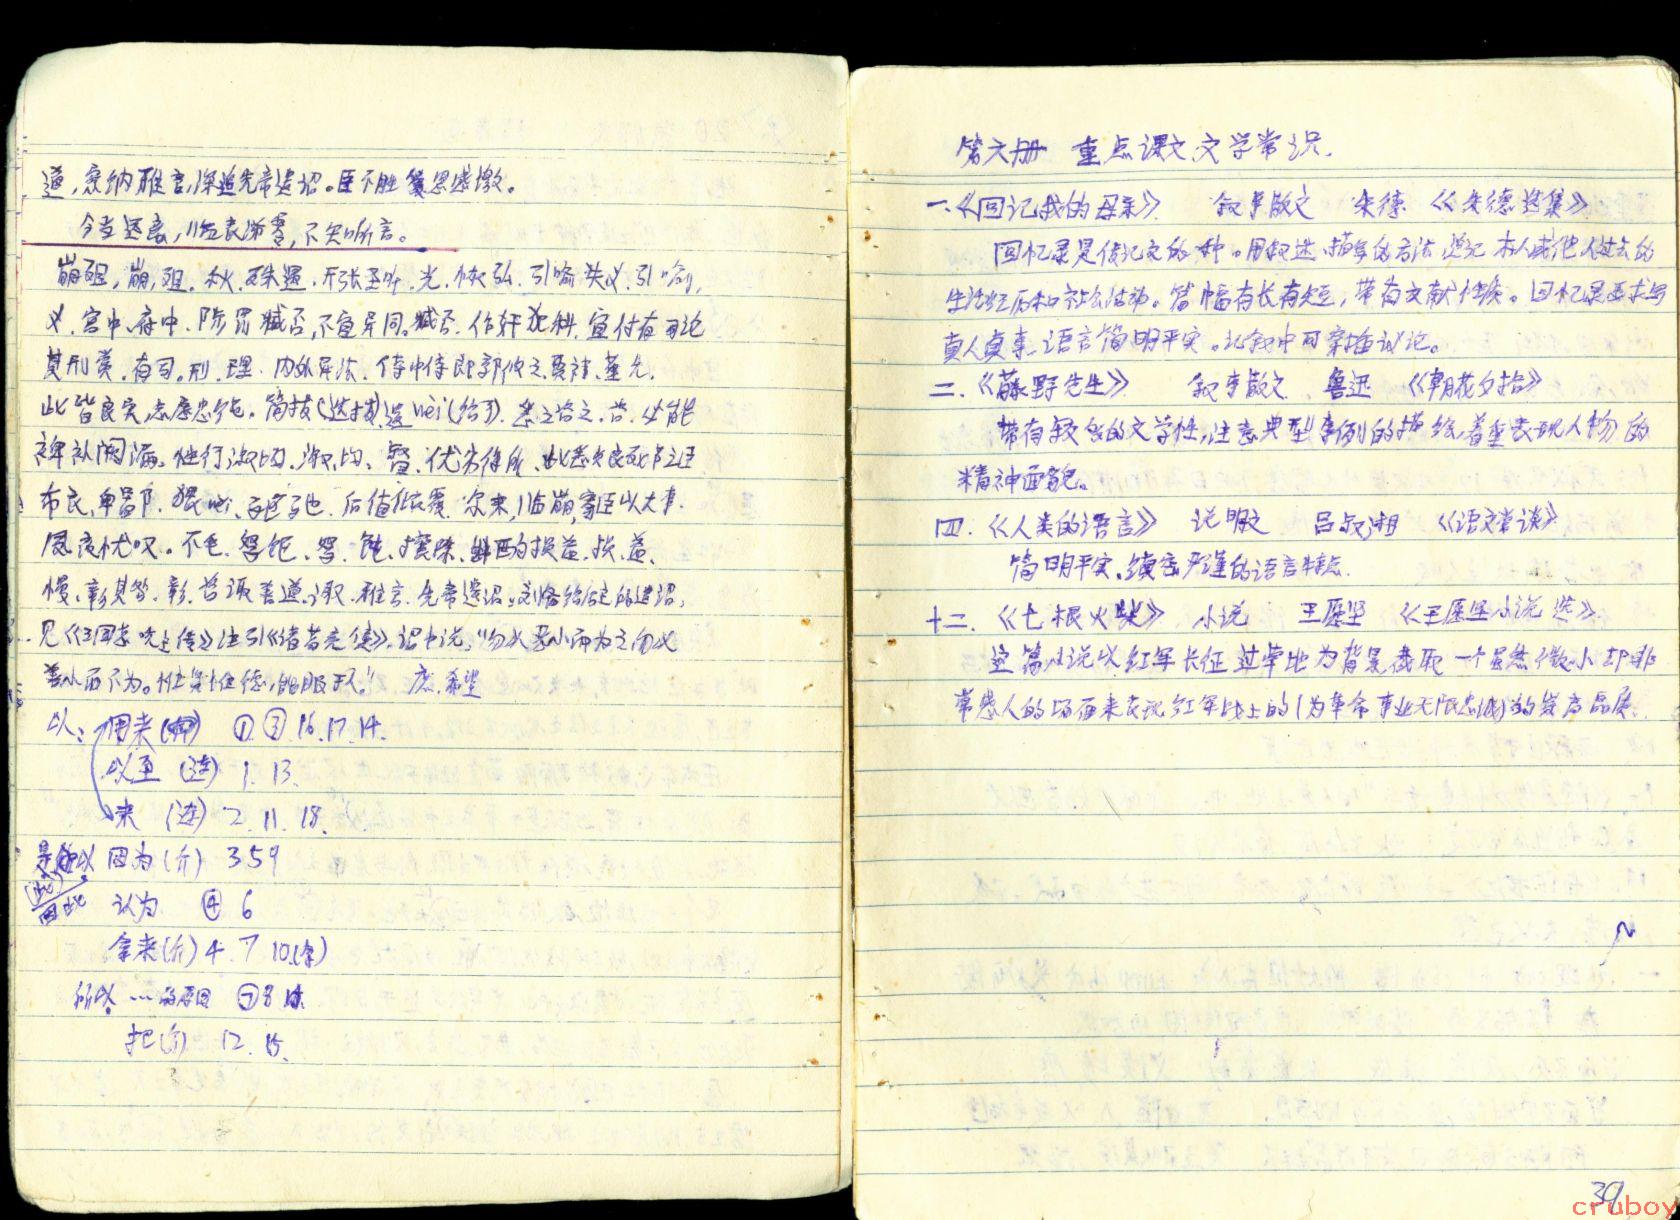 道,察纳雅言,深追先帝遗诏。臣不胜受恩感激。
今当远离,临表涕零,不知所言。
崩殂,崩,殂.秋.殊遇.开张圣听.光.恢弘.引喻失义.引喻,
义.宫中.府中.陟罚臧否,不宜异同.臧否.作奸犯科.宜付有司论
其刑赏.有司.刑.理.内外异法.侍中侍郎郭攸之费祎.董允.
此皆良实,志虑忠纯。简拔(选拔)遗wèi(给予).悉以咨之.咨.必能
裨补阙漏.性行淑均.淑.均.督.优劣得所.此悉贞良死节之臣
布衣.卑鄙.猥wěi.后值倾覆.尔来,临崩寄臣以大事.
夙夜忧叹.不毛.驽钝.驽.钝.攘除.斟酌损益.损.益.
慢.彰其咎.彰.咨诹善道.诹.雅言.先帝遗诏.刘备给后主的遗诏,
见《三国志·先主传》注引《诸葛亮集》.诏中说,“勿以恶小而为之勿以
善小而不为。惟贤惟德,能服于人。” 庶.希望
以: 用来 ① ③ 16.17.14.
以至 (连) 1.13.
来 (连) 2.11.18.
是以 因为(介) 359
因此 认为 ④ 6
拿来(介) 4.7 10.
所以…的原因 ⑦8
把(介) 12.15.
第六册 重点课文.文学常识.
一.《回记我的母亲》 叙事散文 朱德 《朱德选集》
回忆录是传记文的一种.用叙述.描写的方法追记本人或他人过去的
生活经历和社会活动。篇幅有长有短,带有文献性质。回忆录要求写
真人真事.语言简明平实.记叙中可穿插议论。
二.《藤野先生》 叙事散文 鲁迅 《朝花夕拾》
带有较多的文学性,注意典型事例的描绘,着重表现人物的
精神面貌。
四.《人类的语言》 说明文 吕叔湘 《语文常谈》
简明平实、缜密严谨的语言特点.
十二.《七根火柴》 小说 王愿坚 《王愿坚小说选》.
这篇小说以红军长征过草地为背景截取一个虽然微小却非
常感人的场面来表现红军战士的(为革命事业无限忠诚)的崇高品质.
39
cruboy